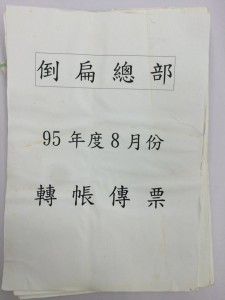 倒扁總部
95年度8月份
轉帳傳票